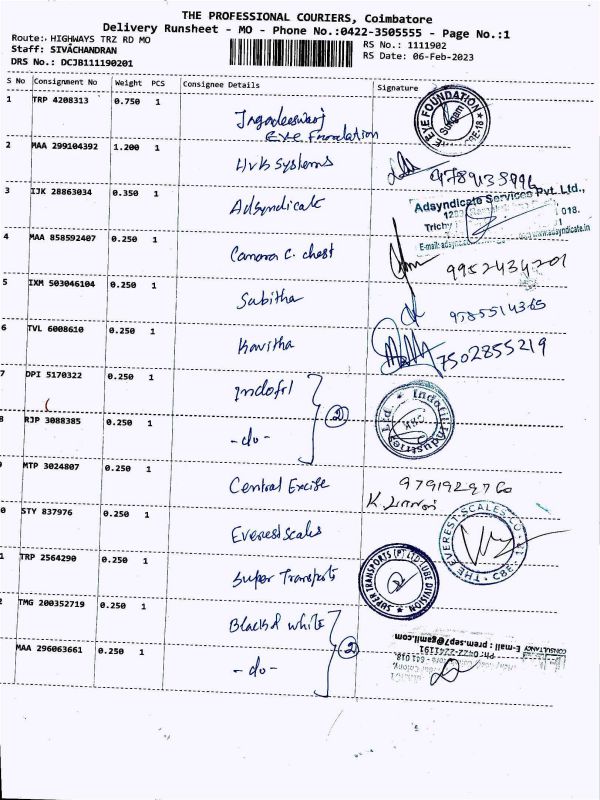 THE PROFESSIONAL COURIERS, Coimbatore
Delivery Runsheet - MO - Phone No.:0422-3505555 - Page No.:1
Route: HIGHWAYS TRZ RD MO
RS No.: 1111902
Staff: SIVACHANDRAN
RS Date: 06-Feb-2023
DRS No.: DCJB111190201
S No Consignment No Weight PCS Consignee Details Signature
1 TRP 4208313 0.750 1 Jegadeeswaj
Eye Foundation
EYE FOUNDATION
Sungam
2 MAA 299104392 1.200 1 HVB Systems
3 IJK 28863034 0.350 1 Adsyndicate
Adsyndicate Services Pvt. Ltd.,
Trichy 018.
E-mail: www.adsyndicate.in
4 MAA 858592407 0.250 1 Canara C. chest 9952434201
5 IXM 503046104 0.250 1 Sabitha 9785514365
6 TVL 6008610 0.250 1 Kavitha 7502855219
7 DPI 5170322 0.250 1 Indofil
2
Indofil Industries Ltd.
8 RJP 3088385 0.250 1 -do-
9 MTP 3024807 0.250 1 Central Excise 9791929760
0 STY 837976 0.250 1 Everest Scales
THE EVEREST SCALES CO. CBE
1 TRP 2564290 0.250 1 Super Transports
SUPER TRANSPORTS (P) LTD LUBE DIVISION
2 TMG 200352719 0.250 1 Black & white
2
CONSULTANCY
E-mail : prem.sep7@gamil.com
Ph: 0422-2241191
MAA 296063661 0.250 1 -do-